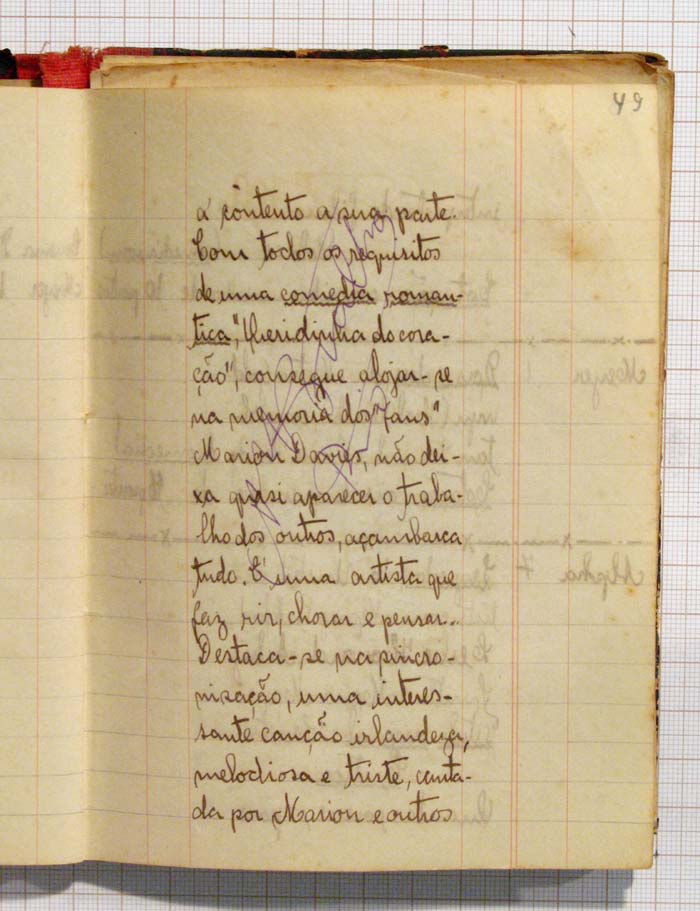 49
a contento a sua parte.
Com todos os requisitos
de uma comedia roman-
tica, "Queridinha do cora-
ção", consegue alojar-se
na memoria dos "fans"
Marion Davies, não dei-
xa quasi aparecer o traba-
lho dos outros, açambarca
tudo. E' uma artista que
faz rir, chorar e pensar..
Destaca-se na sincro-
nisação, uma interes-
sante canção irlandeza,
melodiosa e triste, canta-
da por Marion e outros